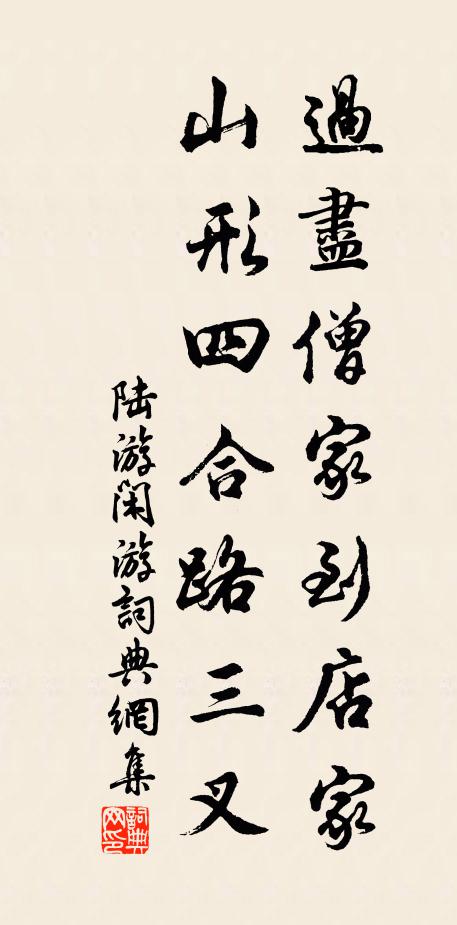 過盡僧家到店家
山形四合路三叉
陆游闲游詞典網集
詞典网印